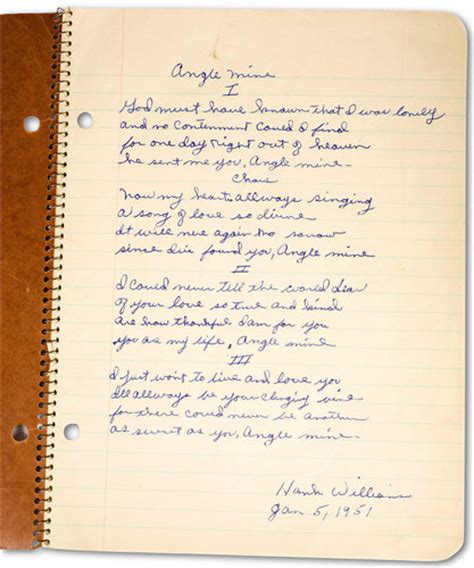 Angle mine
I
God must have known that I was lonely
and no contenment could I find
for one day right out of heaven
he sent me you, Angle mine-
Now my heart allways singing
a song of love so divine
It will
since found you, Angle mine
II
I could never tell the world dear
of your love so true and kind
how thankful I am for you
you are my life, Angle mine
III
I just want to live and love you
Ill allways be your clinging vine
for there could never be another
as sweet as you, Angle mine-
Hank Williams
Jan 5, 1951